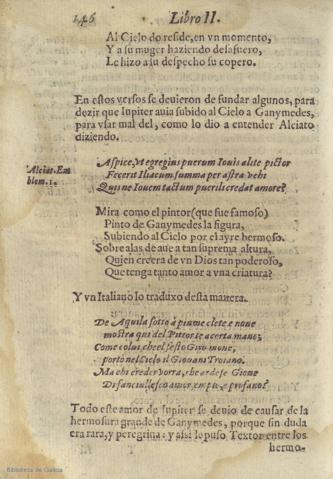 146 Libro II.
Al Cielo do reside, en vn momento,
Y a su muger haziendo desafuero,
Le hizo a su despecho su copero.
En estos versos se deuieron de fundar algunos, para
dezir que Iupiter auia subido al Cielo a Ganymedes,
para vsar mal del, como lo dio a entender Alciato
diziendo.
Alciat. Em
blem. 1.
Aspice, vt egregius puerum Iouis alite pictor
Fecerit Iliacum summa per astra vehi
Quis ne Iouem tactum puerili credat amore?
Mira como el pintor (que fue famoso)
Pinto de Ganymedes la figura,
Subiendo al Cielo por el ayre hermoso.
Sobre alas de aue a tan suprema altura,
Quien creera de vn Dios tan poderoso,
Que tenga tanto amor a vna criatura?
Y vn Italiano lo traduxo desta manera.
De Aquila sotto à piume elete e noue
mostra qui del Pittor te acerta mano;
Come colui, che el sesto Giro moue,
portò nel Cielo il Giouani Troiano.
Ma chi creder vorra, che ardese Gioue
Di fanciullesco amor, empio e profano?
Todo este amor de Iupiter se deuio de causar de la
hermosura grande de Ganymedes, porque sin duda
era rara, y peregrina: y assi lo puso Textor entre los
T hermo-
Biblioteca de Galicia